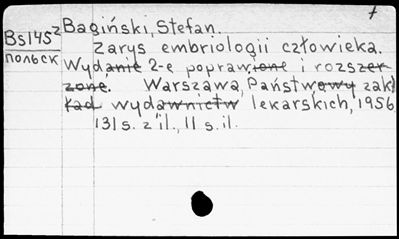 Bs145z Bagiński, Stefan.
Zarys embriologii człowieka.
польск Wydanie 2-e poprawione i rozszer
zone. Warszawa, Państwowy zak
ład wydawnictw lekarskich, 1956
131 s. z il., 11 s. il.